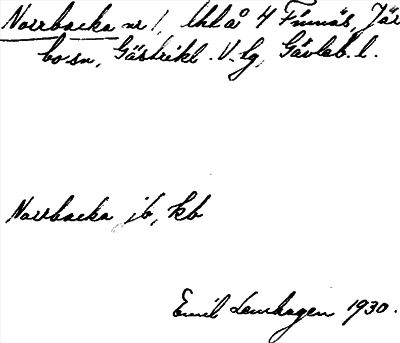 Norrbacka nr 1, lhl å 4 Finnäs, Jär
bo sn, Gästrikl. V. lg, Gävleb. l.
Norrbacka jb, kb
Emil Lenhagen 1930.